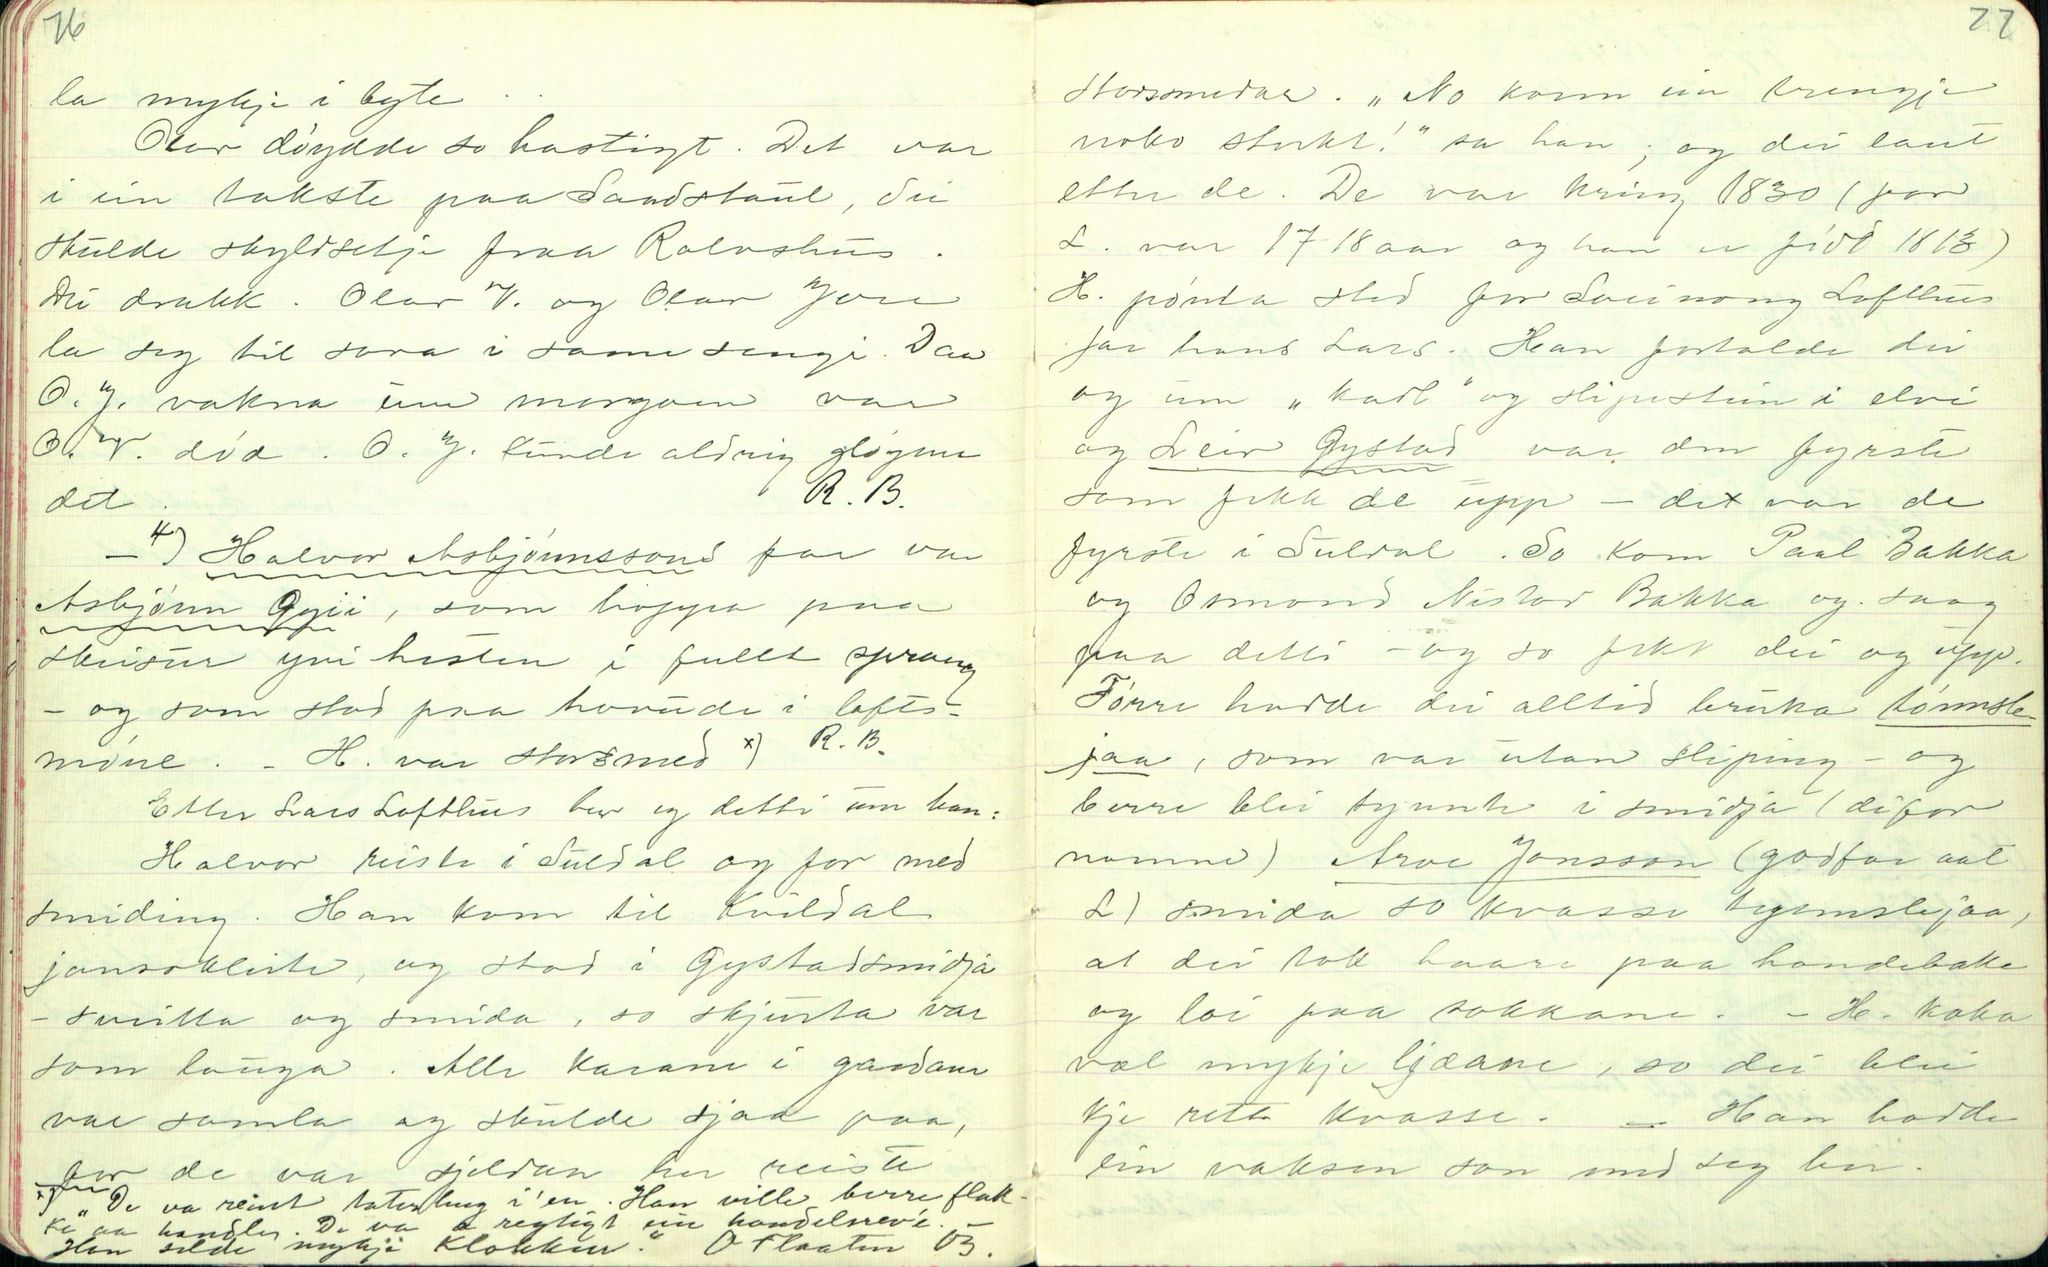 76
la mykje i byte.
Olav døydde so hastigt. Det var
i ein takste paa Sandstaul, dei
skulde skyldsetje fraa Rolvshus.
Dei drakk. Olav V. og Olav Jore
la seg til sova i same sengi. Daa
O. J. vakna um morgoen var
O. V. død. O. J. kunde aldrig gløyme
det. R. B.
— 4) Halvor Asbjørnssons far var
Asbjørn Gyii, som hoppa paa
skeisur yvi hesten i fullt sprang
– og som stod paa hovude i lofts-
møne. – H. var storsmed x) R. B.
Etter Lars Lofthus hev eg detti um han:
Halvor reiste i Suldal og for med
smiding. Han kom til Kvildal
jonsokleite, og stod i Gystadsmidja
– sveitta og smida, so skjurta var
som lauga. Alle karane i gardane
var samla og skulde sjaa paa,
for de var sjeldan her reiste
x) "De va reint taterhug i 'en. Han ville berre flak-
ke aa handle. De va a regtigt ein handelsrev'e. –
Han selde mykje klokkur." O Flaaten 03.
77
storsmedar. "No kann ein trengje
noko sterkt!" sa han; og dei laut
etter de. De var kring 1830 (for
L. var 17-18 aar og han er født 1813)
H. pønta sted for Sveinong Lofthus
far hans Lars. Han fortalde dei
og um "kadl" og slipestein i elvi
og Leiv Gystad var den fyrste
som fekk de upp – det var de
fyrste i Suldal. So kom Paal Bakka
og Osmond Nistad Bakka og saag
paa detti – og so fekk dei og upp.
Førre hadde dei alltid bruka tønnsle-
jaa, som var utan sliping – og
berre blei tynnte i smidja (difor
namne) Arve Jonsson (godfar aat
L) smida so kvasse tynnslejaa,
at dei tok haare paa handebake
og loi paa sokkane. – H. koka
vel mykje ljaane, so dei blei
kje rette kvasse. — Han hadde
ein vaksen son med seg her.